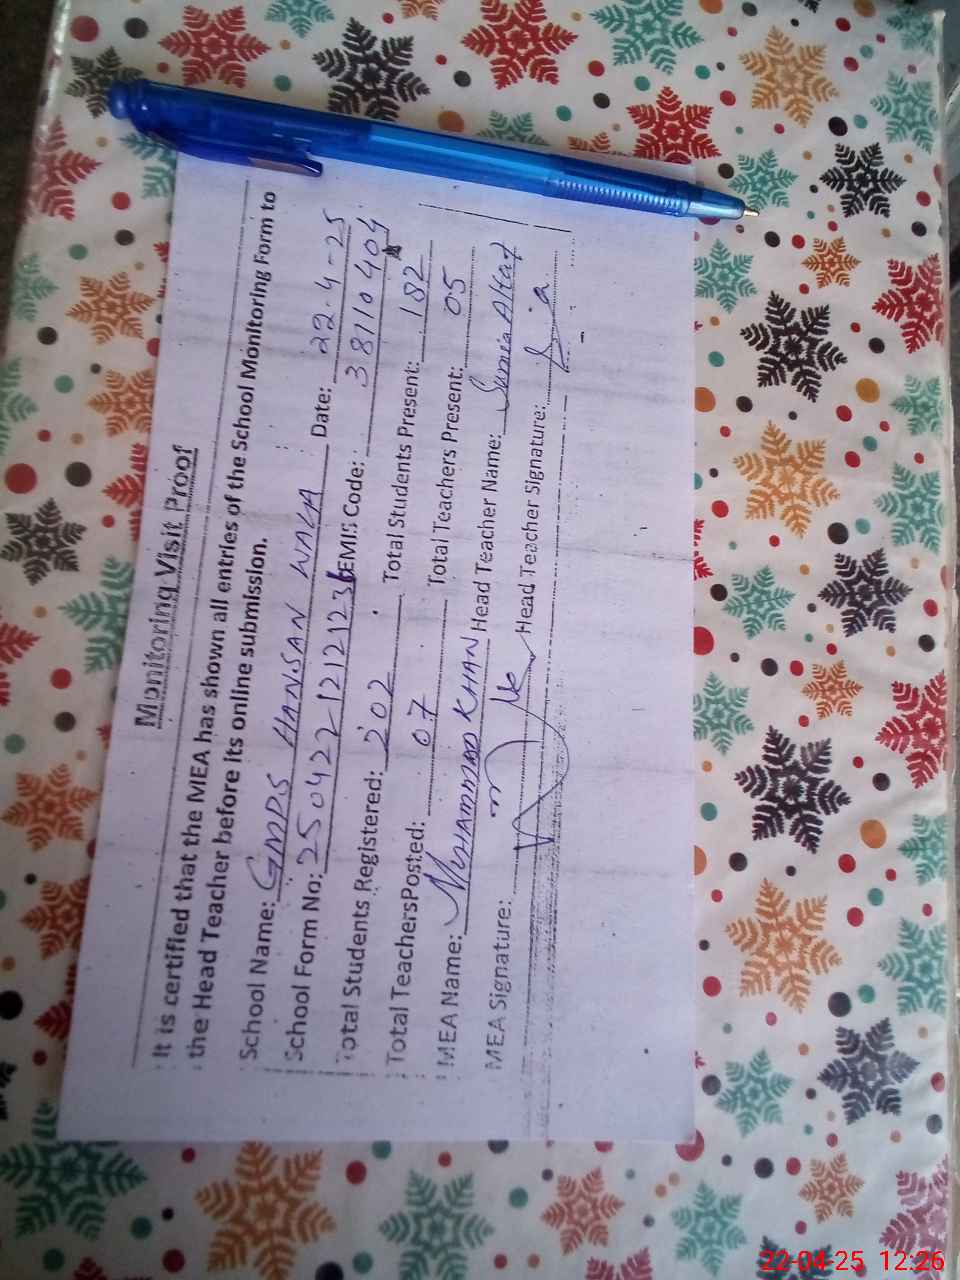 Monitoring Visit Proof
It is certified that the MEA has shown all entries of the School Monitoring Form to
the Head Teacher before its online submission.
School Name: GMPS HANSAN WALA Date: 22-4-25
School Form No: 25042212121236 EMIS Code: 38110404
Total Students Registered: 202 Total Students Present: 182
Total TeachersPosted: 07 Total Teachers Present: 05
MEA Name: MUHAMMAD KHAN Head Teacher Name: Samia Altaf
MEA Signature: Head Teacher Signature:
22-04-25 12:26